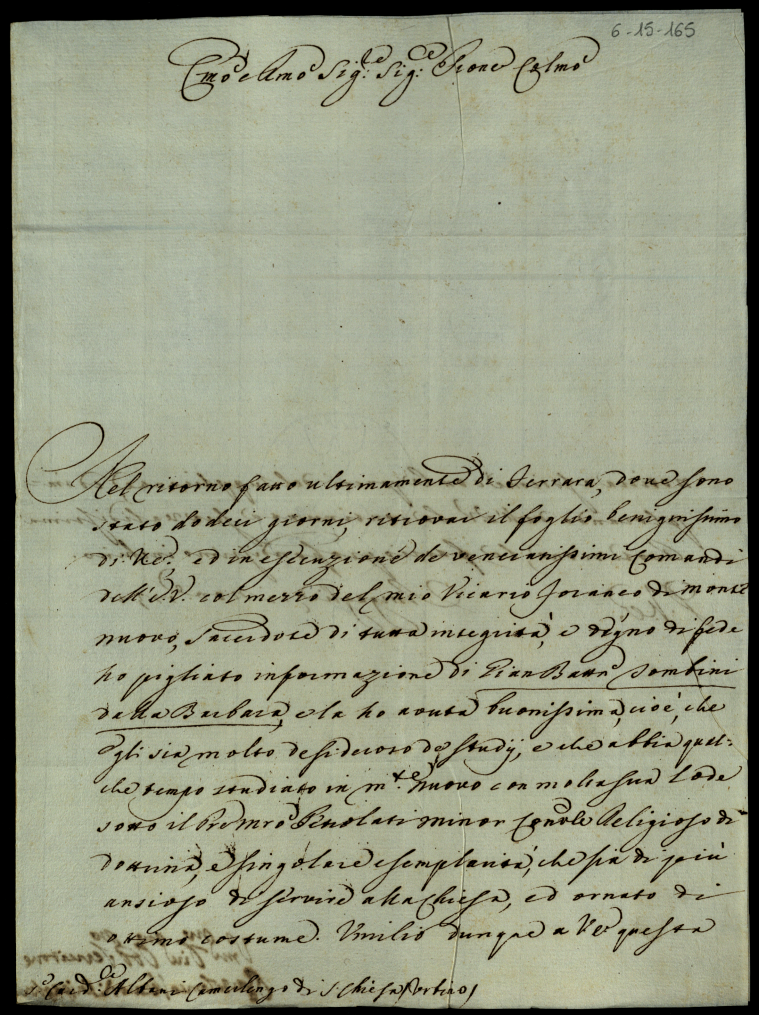 6-15-165
Emo e Rmo Sig.re Sig.re Prone Colmo
Nel ritorno fatto ultimamente di Ferrara, dove sono
stato dodeci giorni, ritrovai il foglio benignissimo
di V.E. ed in esecuzione de veneratissimi Comandi
dell'E.V. col mezzo del mio Vicario Foraneo di monte
nuovo, Sacerdote di tutta integrità, e degno di fede
ho pigliato informazione di Gian Battã Sombini
dalla Barbara, e la ho avuta buonissima, cioè, che
egli sia molto desideroso de Studij, e che abbia qual-
che tempo studiato in m.te Nuovo con molta sua Lode
sotto il Pre Mro minor Convle Religioso di
dottrina, e singolare esemplarità, che sia di più
ansioso di servire alla Chiesa, ed ornato di
ottimo costume. Umilio dunque a V.E. questa
S.r Card.le Albani Camerlengo di S. Chiesa (Urbino)